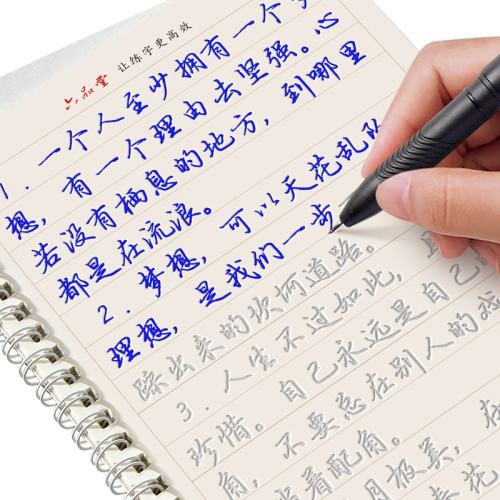 六品堂 让练字更高效
1. 一个人至少拥有一个梦
想，有一个理由去坚强。心
若没有栖息的地方，到哪里
都是在流浪。
2. 梦想，可以天花乱坠
理想，是我们一步
踩出来的坎坷道路。
3. 人生不过如此，且
珍惜。自己永远是自己的
角，不要总在别人的戏
当着配角。
月极美，在